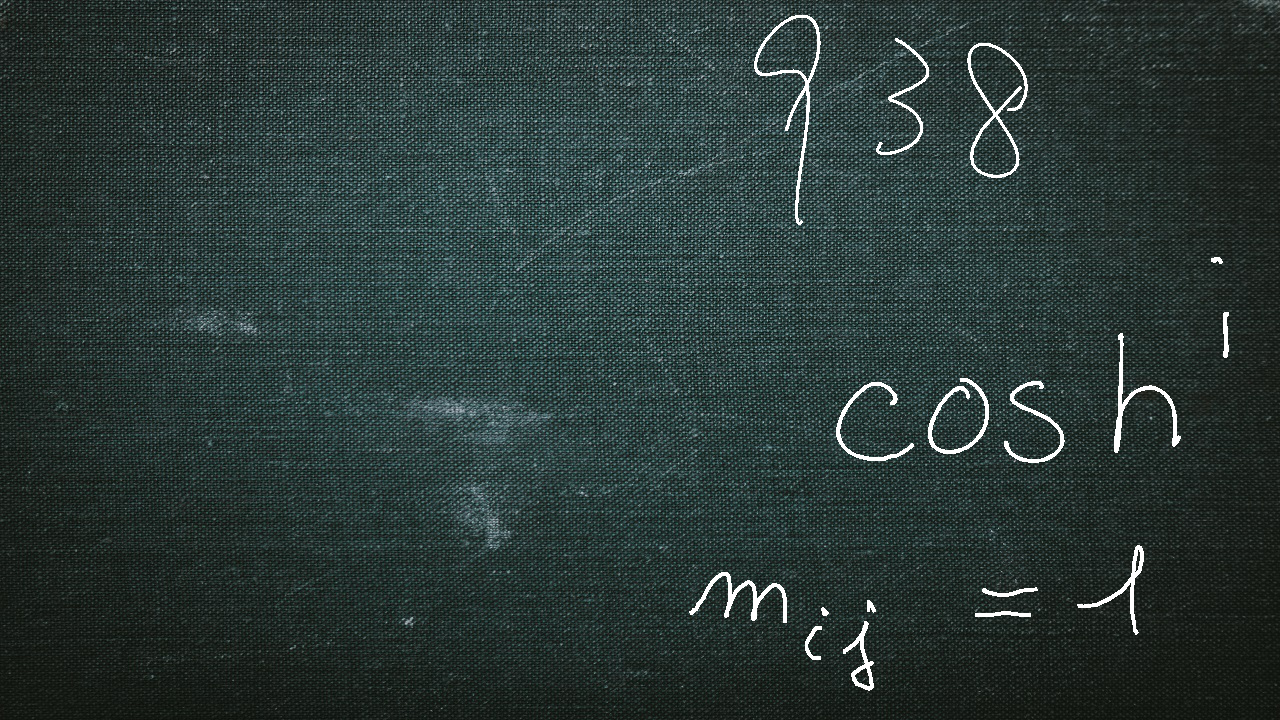 938
cosh^i
m_{ij} = 1